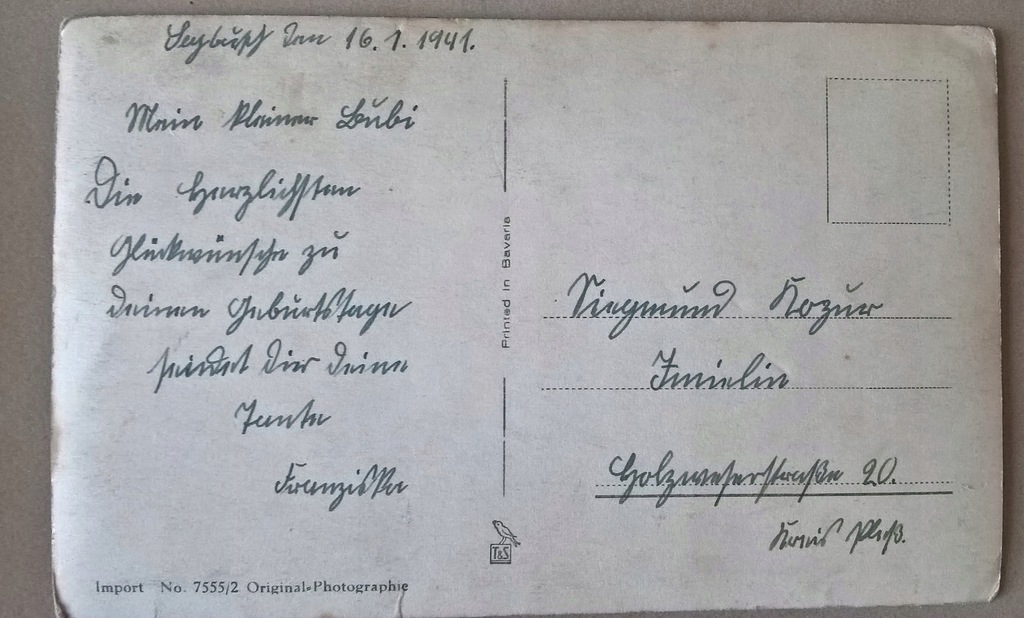 Saybusch den 16.1.1941.
Mein kleiner Bubi
Die Herzlichsten
Glückwünsche zu
deinen Geburtstage
sendet Dir deine
Tante
Franziska
Printed in Bavaria
Siegmund Kozur
Imielin
Holzweserstraße 20.
Kreis Pleß.
T&S
Import No. 7555/2 Original-Photographie